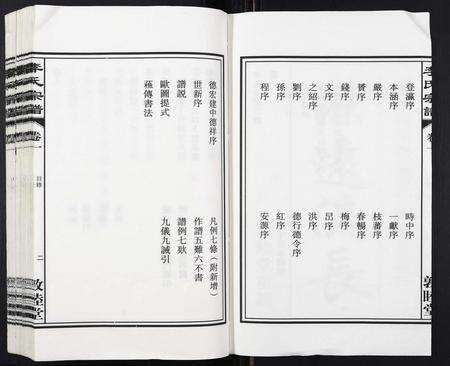 李氏宗譜
卷一
敦睦堂
登瀛序
時中序
本涵序
一獻序
嚴序
枝蕃序
賛序
春暢序
錢序
梅序
文序
呂序
之紹序
洪序
劉序
德行德令序
孫序
紅序
程序
安源序
德宏建中德祥序
凡例七條（附新增）
世新序
作譜五難六不書
譜説
譜例七欵
歐圖提式
九儀九誡引
蘓傳書法
李氏宗譜
卷一
目錄
二
敦睦堂